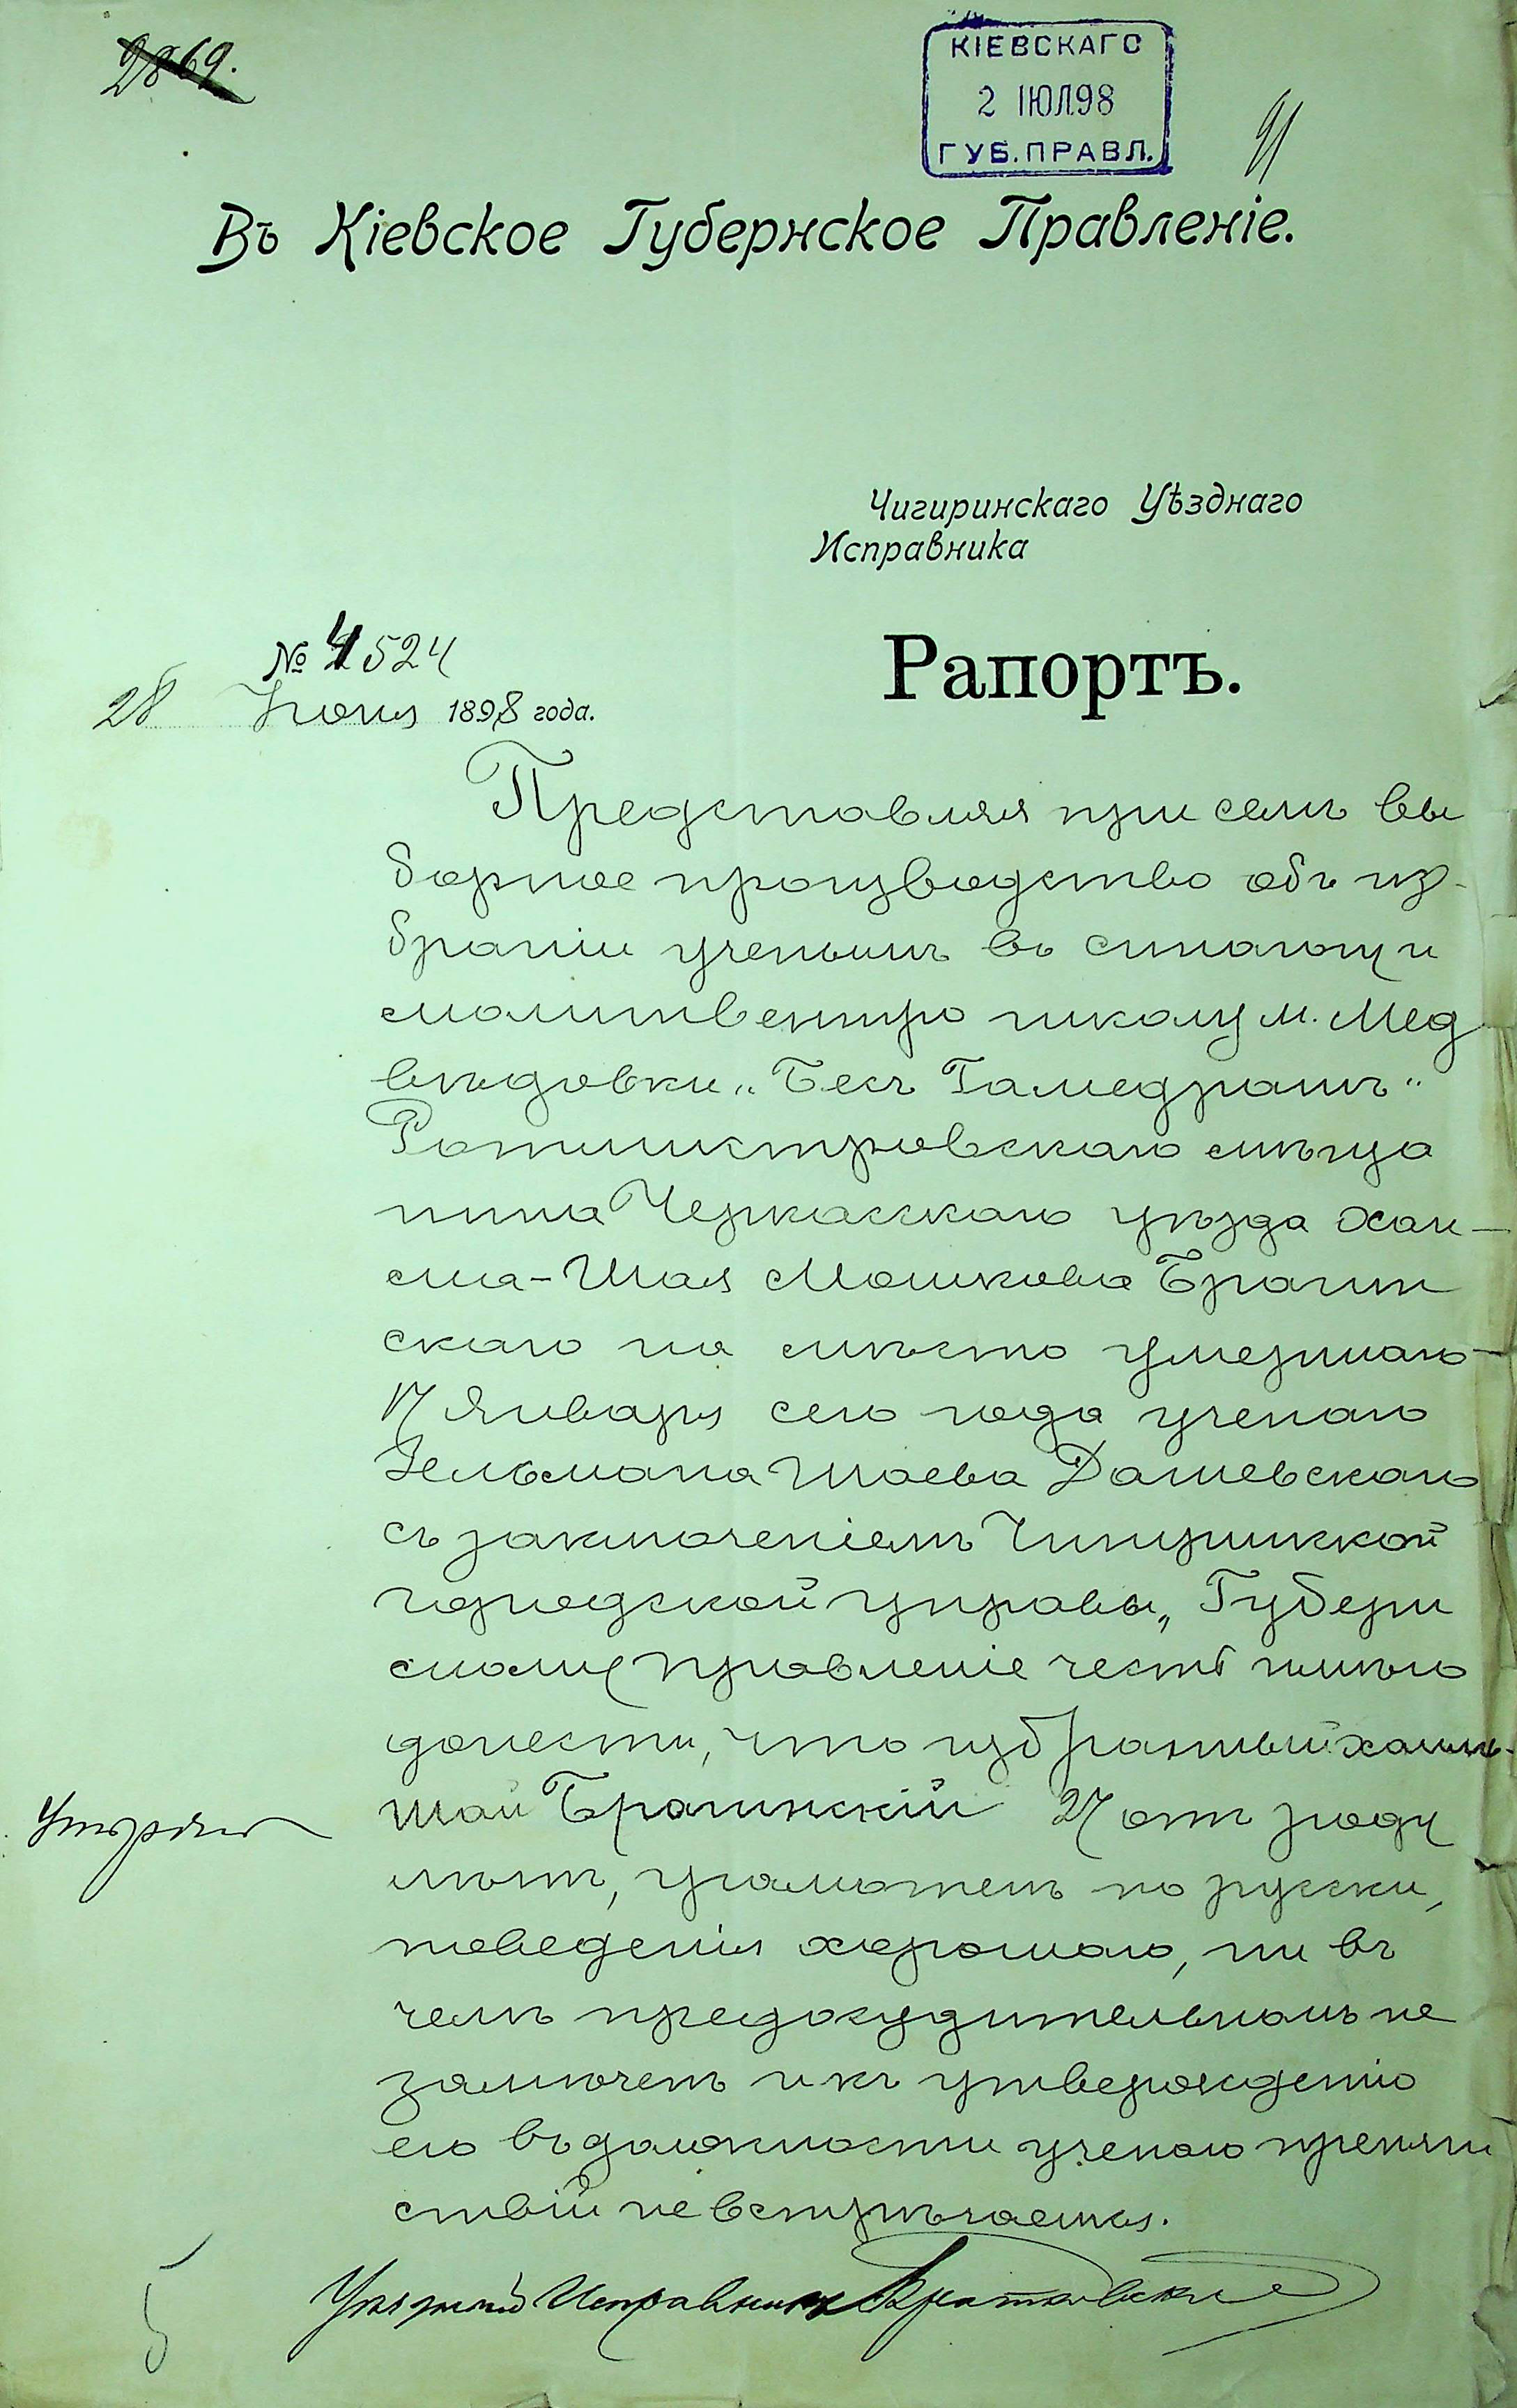 2869.
КІЕВСКАГО
2 ІЮЛ98
ГУБ.ПРАВЛ.
91
Въ Кіевское Губернское Правленіе.
Чигиринскаго Уѣзднаго
Исправника
№ 4524
Рапортъ.
28 Іюня 1898 года.
Представляя при семъ вы
борное производство объ из-
браніи ученымъ въ
молитвенную школу м. Мед
вѣдовки „Бесъ Гамедрашъ"
Ротмистровскаго мѣща
нина Черкасскаго уѣзда Хаи-
ма-Шая Мошкова Брагин
скаго на мѣсто умершаго
17 Января сего года ученаго
Зельмана Шаева Дашевскаго
съ заключеніемъ Чигиринской
городской управы, Губерн
скому Правленіе честь имѣю
донести, что избранный Хаимъ-
Шая Брагинскій 27 отъ роду
лѣтъ, грамотенъ по русски,
поведенія хорошаго, ни въ
чемъ предосудительномъ не
замѣченъ и къ утвержденію
его въ должности ученаго препят
ствій не встрѣчается.
Уѣздный Исправникъ